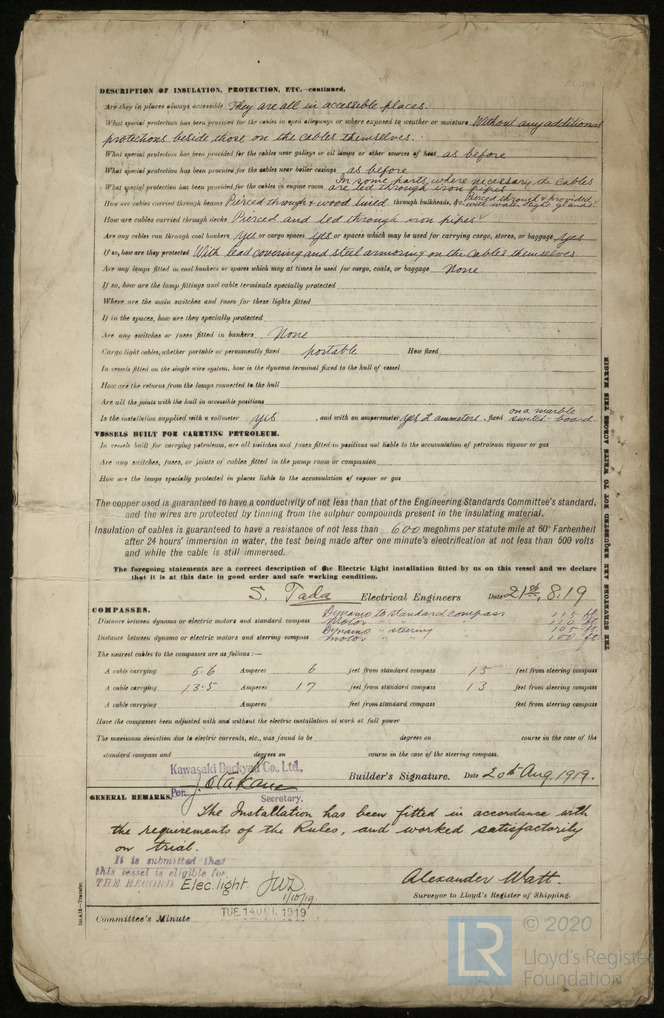 DESCRIPTION OF INSULATION, PROTECTION, ETC.—continued.
Are they in places always accessible They are all in accessible places.
What special protection has been provided for the cables in open alleyways or where exposed to weather or moisture Without any additional
protections beside those on the cables themselves.
What special protection has been provided for the cables near galleys or oil lamps or other sources of heat as before
What special protection has been provided for the cables near boiler casings as before
What special protection has been provided for the cables in engine room In some parts, where necessary the cables are led through iron pipes
How are cables carried through beams Pierced through & wood lined through bulkheads, &c. Pierced through & provided with water tight glands
How are cables carried through decks Pierced and led through iron pipes
Are any cables run through coal bunkers yes or cargo spaces yes or spaces which may be used for carrying cargo, stores, or baggage yes
If so, how are they protected With lead covering and steel armoring on the cables themselves
Are any lamps fitted in coal bunkers or spaces which may at times be used for cargo, coals, or baggage None
If so, how are the lamp fittings and cable terminals specially protected
Where are the main switches and fuses for these lights fitted
If in the spaces, how are they specially protected
Are any switches or fuses fitted in bunkers None
Cargo light cables, whether portable or permanently fixed portable How fixed
In vessels fitted on the single wire system, how is the dynamo terminal fixed to the hull of vessel
How are the returns from the lamps connected to the hull
Are all the joints with the hull in accessible positions
Is the installation supplied with a voltmeter yes , and with an amperemeter yes 2 ammeters , fixed on a marble switch board
VESSELS BUILT FOR CARRYING PETROLEUM.
In vessels built for carrying petroleum, are all switches and fuses fitted in positions not liable to the accumulation of petroleum vapour or gas
Are any switches, fuses, or joints of cables fitted in the pump room or companion
How are the lamps specially protected in places liable to the accumulation of vapour or gas
The copper used is guaranteed to have a conductivity of not less than that of the Engineering Standards Committee's standard,
and the wires are protected by tinning from the sulphur compounds present in the insulating material.
Insulation of cables is guaranteed to have a resistance of not less than 600 megohms per statute mile at 60° Farhenheit
after 24 hours' immersion in water, the test being made after one minute's electrification at not less than 500 volts
and while the cable is still immersed.
The foregoing statements are a correct description of the Electric Light installation fitted by us on this vessel and we declare
that it is at this date in good order and safe working condition.
S. Tada Electrical Engineers Date 21st, 8.19
COMPASSES.
Distance between dynamo or electric motors and standard compass Dynamo to standard compass 115 ft
Motor " " 110 ft
Distance between dynamo or electric motors and steering compass Dynamo " steering 105 ft
Motor " " 100 ft
The nearest cables to the compasses are as follows:—
A cable carrying 5.6 Amperes 6 feet from standard compass 15 feet from steering compass
A cable carrying 13.5 Amperes 17 feet from standard compass 13 feet from steering compass
A cable carrying Amperes feet from standard compass feet from steering compass
Have the compasses been adjusted with and without the electric installation at work at full power
The maximum deviation due to electric currents, etc., was found to be degrees on course in the case of the
standard compass and degrees on course in the case of the steering compass.
Kawasaki Dockyard Co., Ltd.,
Per Secretary. Builder's Signature. Date 20th Aug. 1919.
GENERAL REMARKS.
The Installation has been fitted in accordance with
the requirements of the Rules, and worked satisfactorily
on trial.
It is submitted that
this vessel is eligible for
THE RECORD Elec. light. JWD 1/10/19
Alexander Watt.
Surveyor to Lloyd's Register of Shipping.
Committee's Minute TUE 14 OCT. 1919
THE SURVEYORS ARE REQUESTED NOT TO WRITE ACROSS THIS MARGIN
LR © 2020
Lloyd's Register
Foundation